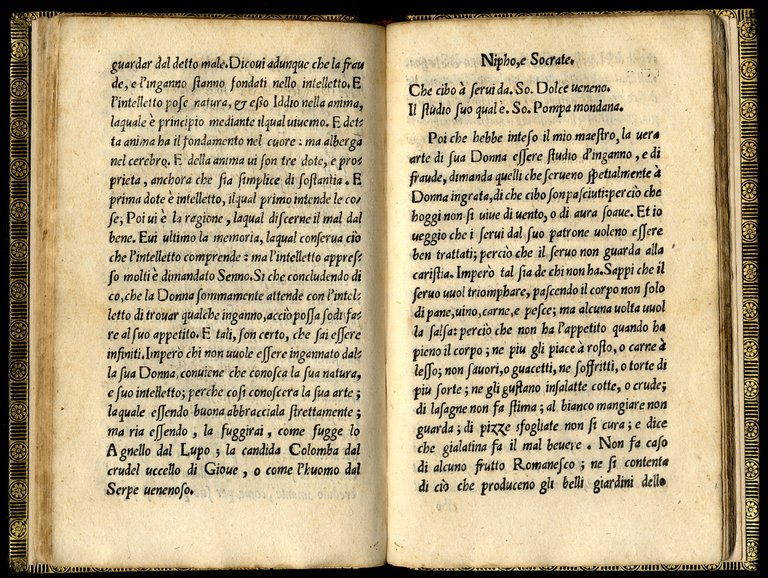 guardar dal detto male. Dicoui adunque che la frau
de, e l'inganno stanno fondati nello intelletto. E
l'intelletto pose natura, & esso Iddio nella anima,
laquale è principio mediante ilqual uiuemo. E det-
ta anima ha il fondamento nel cuore: ma alberga
nel cerebro. E della anima ui son tre dote, e pro-
prieta, anchora che sia simplice di sostantia. E
prima dote è intelletto, ilqual primo intende le co-
se; Poi ui è la ragione, laqual discerne il mal dal
bene. Eui ultimo la memoria, laqual conserua ciò
che l'intelletto comprende: ma l'intelletto appres-
so molti è dimandato Senno. Si che concludendo di
co, che la Donna sommamente attende con l'intel-
letto di trouar qualche inganno, acciò possa sodisfa-
re al suo appetito. E tali, son certo, che sai essere
infiniti. Imperò chi non uuole essere ingannato dal-
la sua Donna, conuiene che conosca la sua natura,
e suo intelletto; perche cosi conoscera la sua arte;
laquale essendo buona abbracciala strettamente;
ma ria essendo, la fuggirai, come fugge lo
Agnello dal Lupo; la candida Colomba dal
crudel uccello di Gioue, o come l'huomo dal
Serpe uenenoso.
Nipho, e Socrate.
Che cibo à serui da. So. Dolce ueneno.
Il studio suo qual è. So. Pompa mondana.
Poi che hebbe inteso il mio maestro, la uera
arte di sua Donna essere studio d'inganno, e di
fraude, dimanda quelli che serueno spetialmente à
Donna ingrata, di che cibo son pasciuti: perciò che
hoggi non si uiue di uento, o di aura soaue. Et io
ueggio che i serui dal suo patrone uoleno essere
ben trattati; perciò che il seruo non guarda alla
caristia. Imperò tal sia de chi non ha. Sappi che il
seruo uuol triomphare, pascendo il corpo non solo
di pane, uino, carne, e pesce; ma alcuna uolta uuol
la salsa: perciò che non ha l'appetito quando ha
pieno il corpo; ne piu gli piace à rosto, o carne à
lesso; non sauori, o guacetti, ne soffritti, o torte di
più sorte; ne gli gustano insalatte cotte, o crude;
di lasagne non fa stima; al bianco mangiare non
guarda; di pizze sfogliate non si cura; e dice
che gialatina fa il mal beuere. Non fa caso
di alcuno frutto Romanesco; ne si contenta
di ciò che produceno gli belli giardini dello